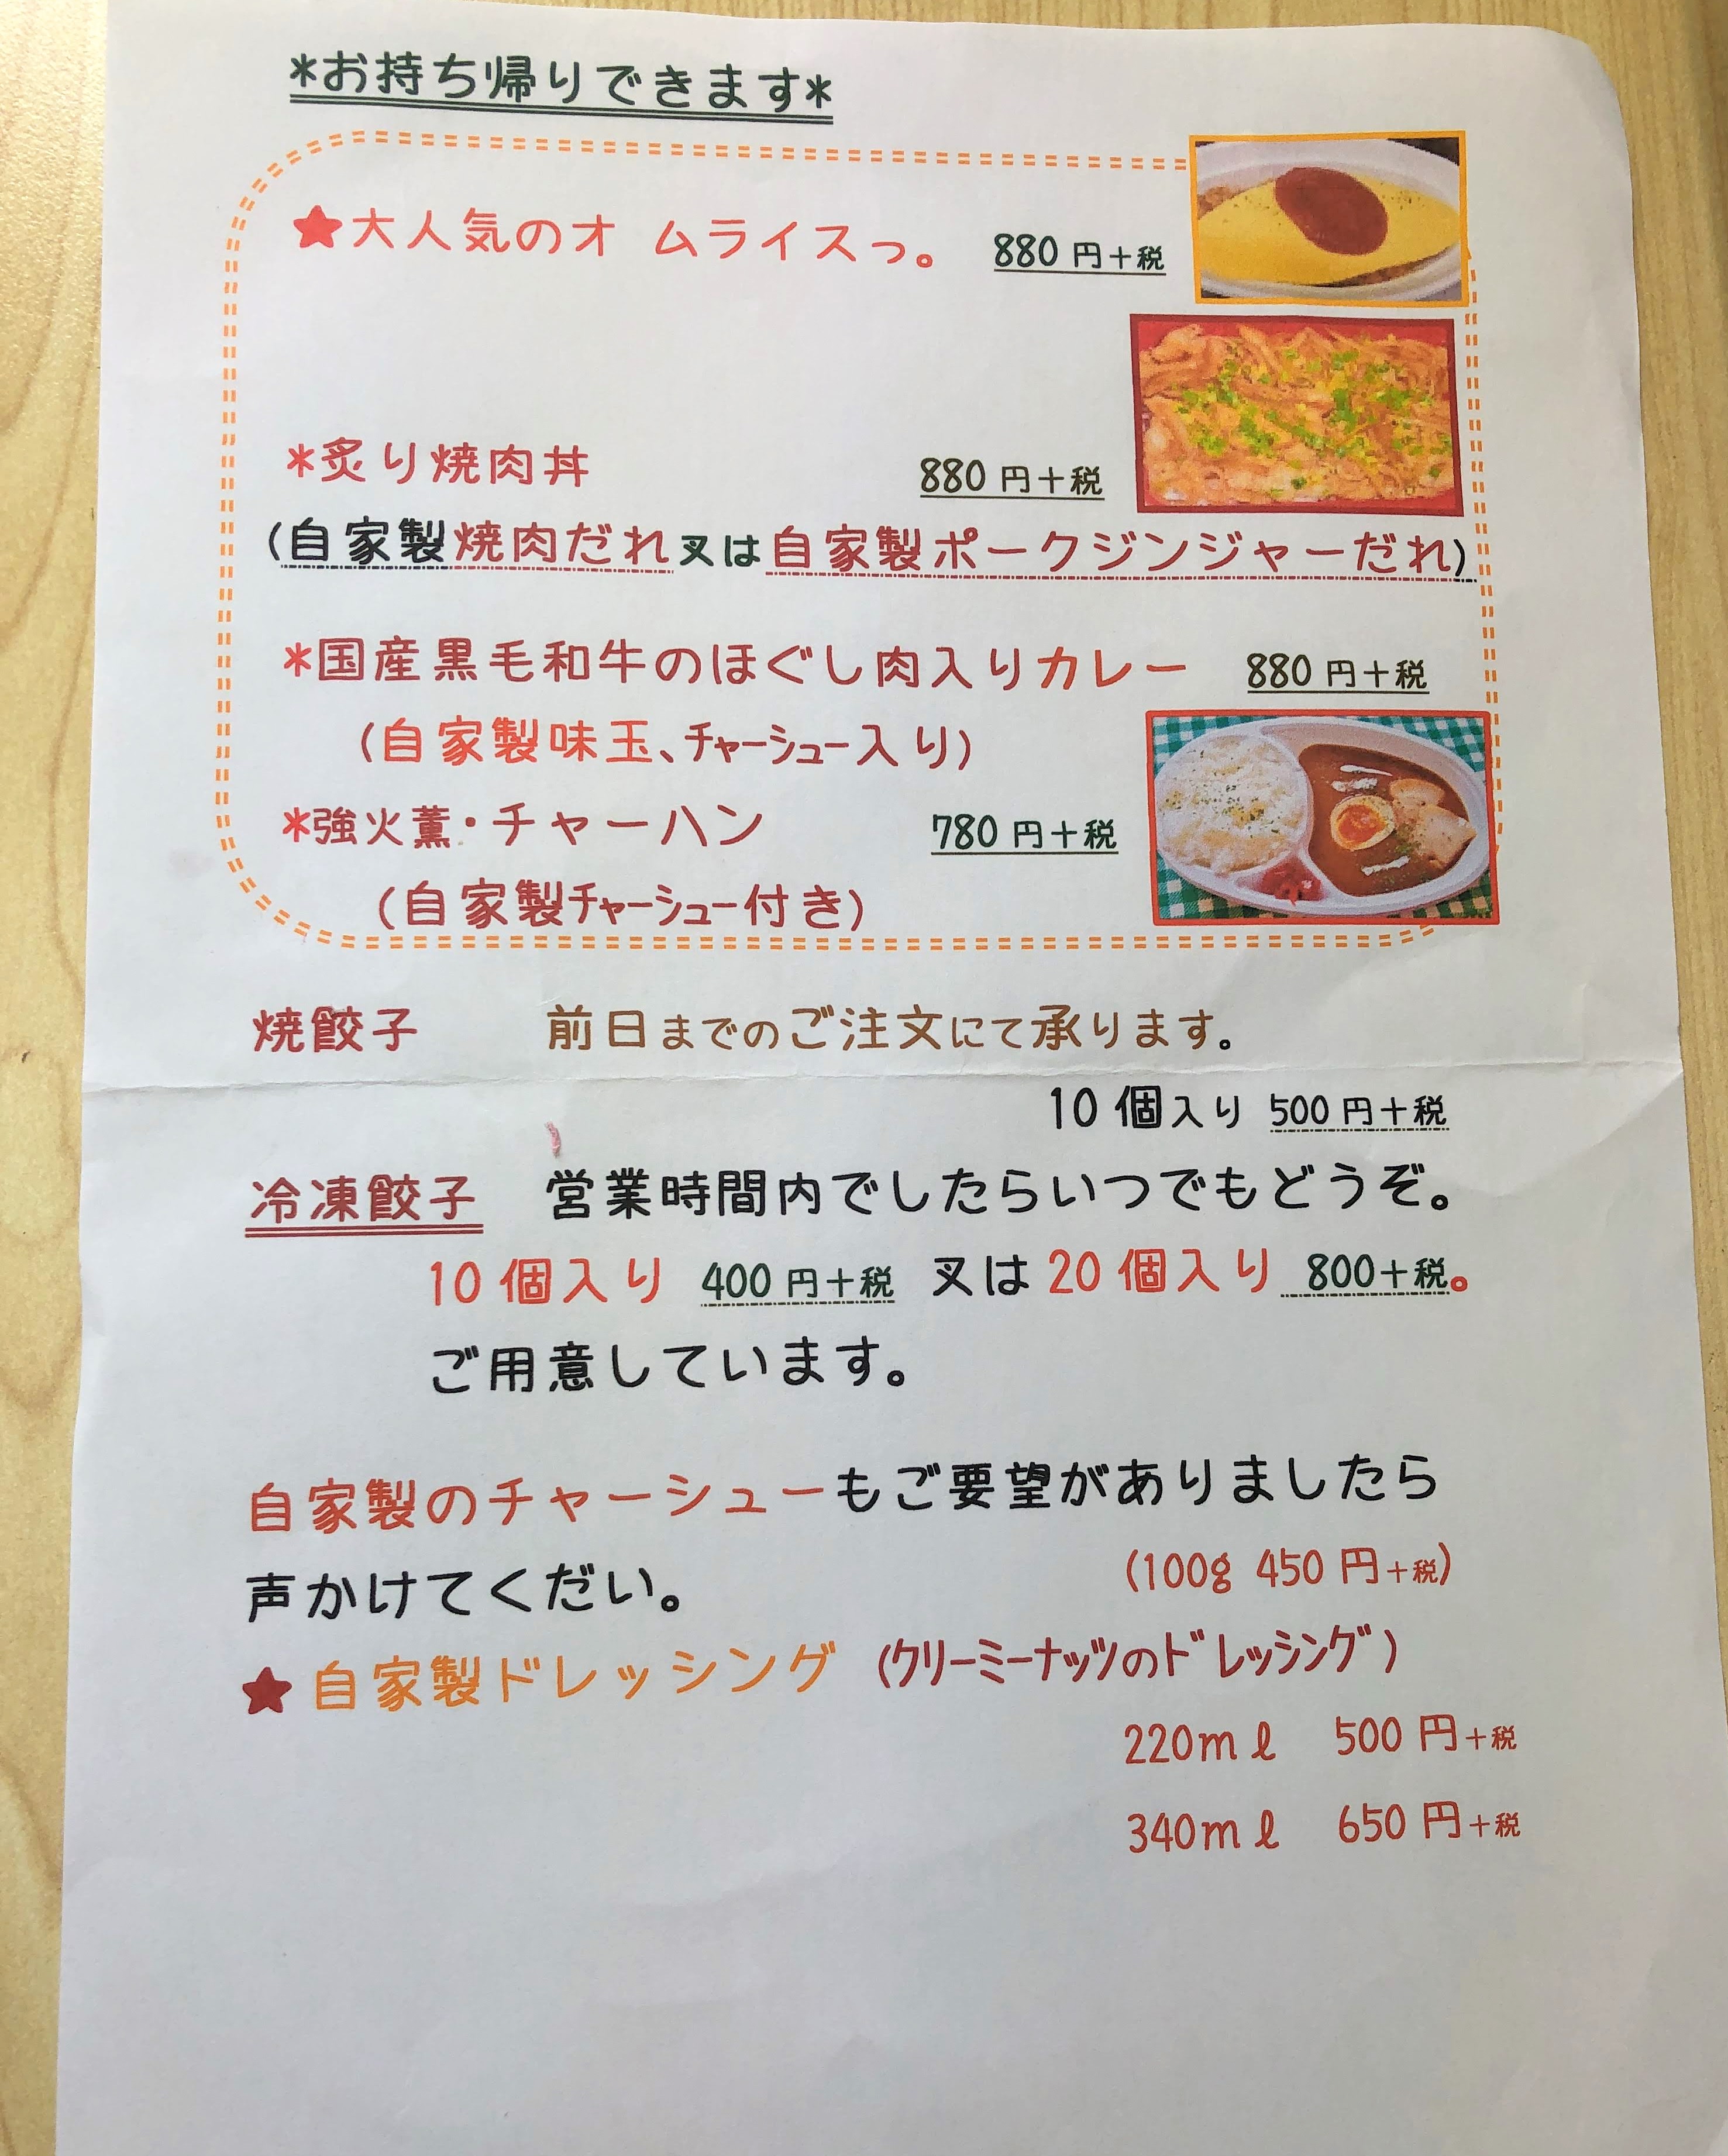 *お持ち帰りできます*
★大人気のオ ムライスっ。 880 円+税
*炙り焼肉丼 880 円+税
(自家製焼肉だれ又は自家製ポークジンジャーだれ)
*国産黒毛和牛のほぐし肉入りカレー 880 円+税
(自家製味玉、ﾁｬｰｼｭｰ入り)
*強火薫・チャーハン 780 円+税
(自家製ﾁｬｰｼｭｰ付き)
焼餃子 前日までのご注文にて承ります。
10 個入り 500 円+税
冷凍餃子 営業時間内でしたらいつでもどうぞ。
10 個入り 400 円+税 又は 20 個入り 800+税。
ご用意しています。
自家製のチャーシューもご要望がありましたら
声かけてくだい。 (100g 450 円+税)
★ 自家製ドレッシング (ｸﾘｰﾐｰﾅｯﾂのﾄﾞﾚｯｼﾝｸﾞ)
220mℓ 500 円+税
340mℓ 650 円+税